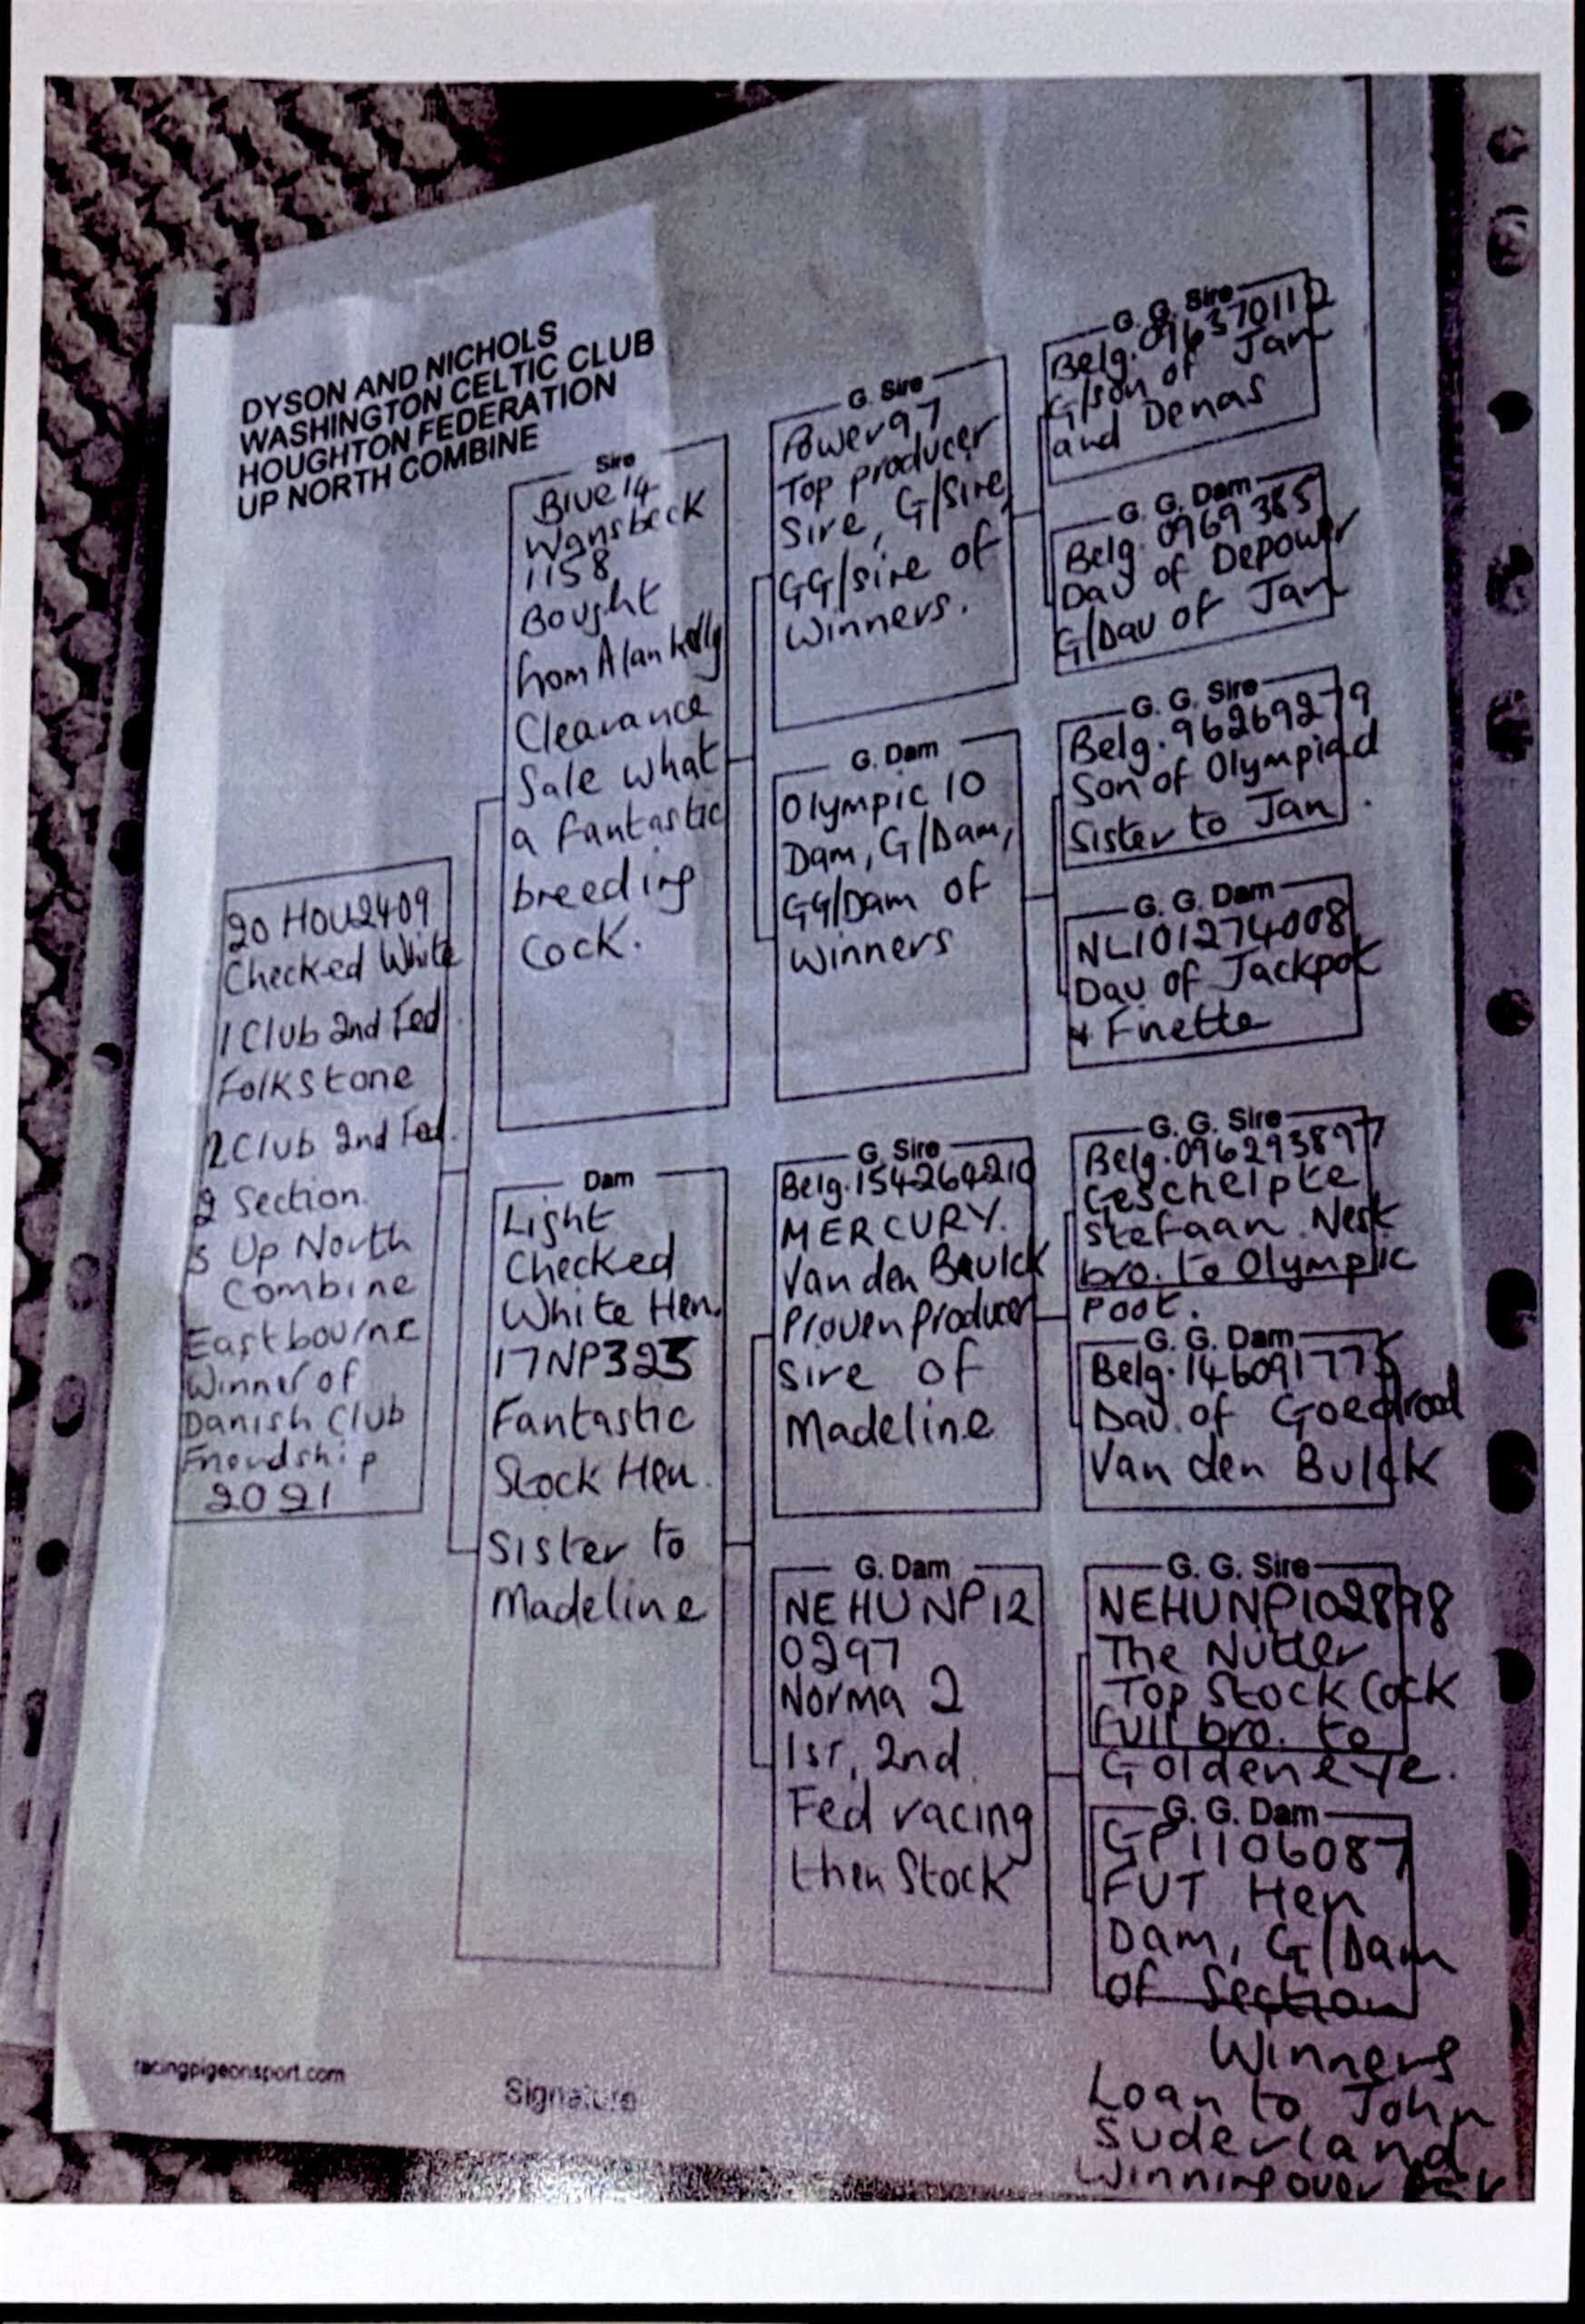 DYSON AND NICHOLS
WASHINGTON CELTIC CLUB
HOUGHTON FEDERATION
UP NORTH COMBINE
20 HOU2409
Checked White
1 Club 2nd Fed
Folkstone
2 Club 2nd Fed.
2 Section.
5 Up North
Combine
Eastbourne
Winner of
Danish Club
Friendship
2021
Sire
Blue 14
Wansbeck
1158
Bought
from Alan Kelly
Clearance
Sale what
a fantastic
breeding
Cock.
Dam
Light
Checked
White Hen.
17NP323
Fantastic
Stock Hen.
Sister to
Madeline
G. Sire
Power97
Top producer
Sire, G/Sire,
GG/sire of
Winners.
G. Dam
Olympic 10
Dam, G/Dam,
GG/Dam of
Winners
G. Sire
Belg.154264210
MERCURY.
Van den Baulck
Proven producer
Sire of
Madeline
G. Dam
NEHUNP12
0297
Norma 2
1st, 2nd
Fed racing
then Stock
G. G. Sire
Belg.096370112
G/son of Jan
and Denas
G. G. Dam
Belg. 0969385
Dau of Depower
G/Dau of Jan
G. G. Sire
Belg.96269279
Son of Olympiad
Sister to Jan.
G. G. Dam
NL101274008
Dau of Jackpot
+ Finette
G. G. Sire
Belg.096293897
Geschelpte
Stefaan. Nest
bro. to Olympic
Poot.
G. G. Dam
Belg.146091775
Dau. of Goedrood
Van den Bulck
G. G. Sire
NEHUNP102898
The Nutler
Top Stock Cock
full bro. to
Goldeneye.
G. G. Dam
GP1106087
FUT Hen
Dam, G/Dam
of Section
Winners
Loan to John
Suderland
Winning over
racingpigeonsport.com
Signature